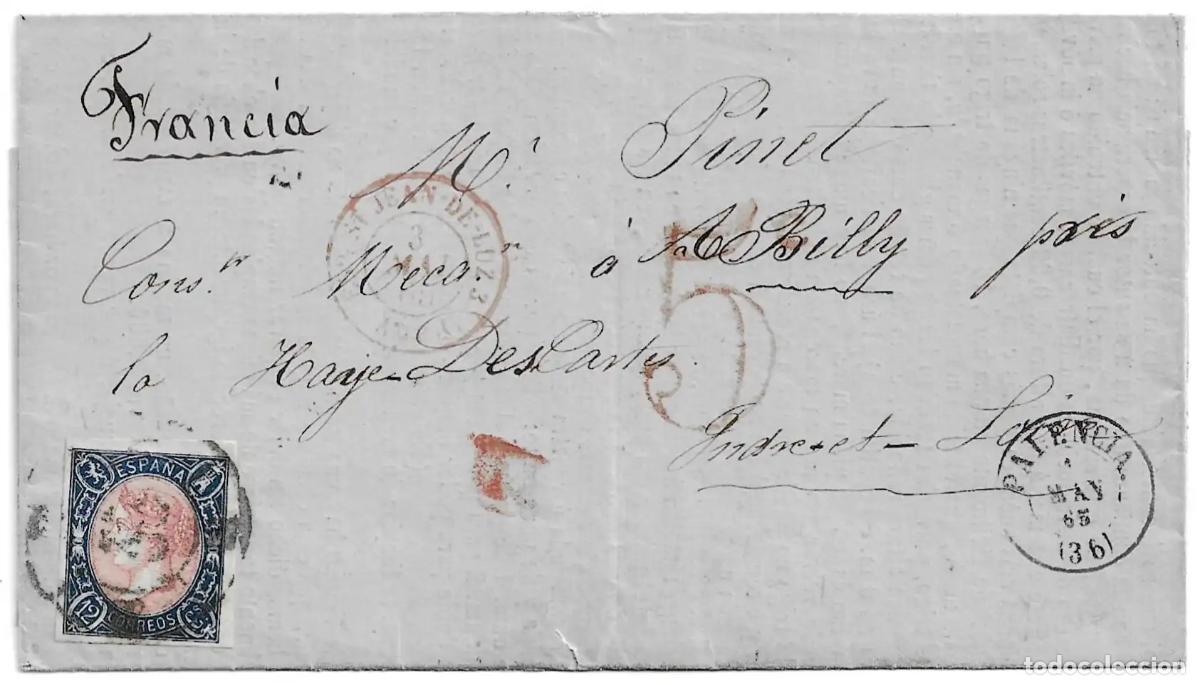 Francia
Mr. Pinet
Constr. Mecan. à Abilly près
la Haye DesCartes
Indre-et-Loire
ST JEAN-DE-LUZ 3
3
MAI
5
PALENCIA.
1
MAY
65
(36)
ESPAÑA
12 CORREOS Cs.
todocoleccion